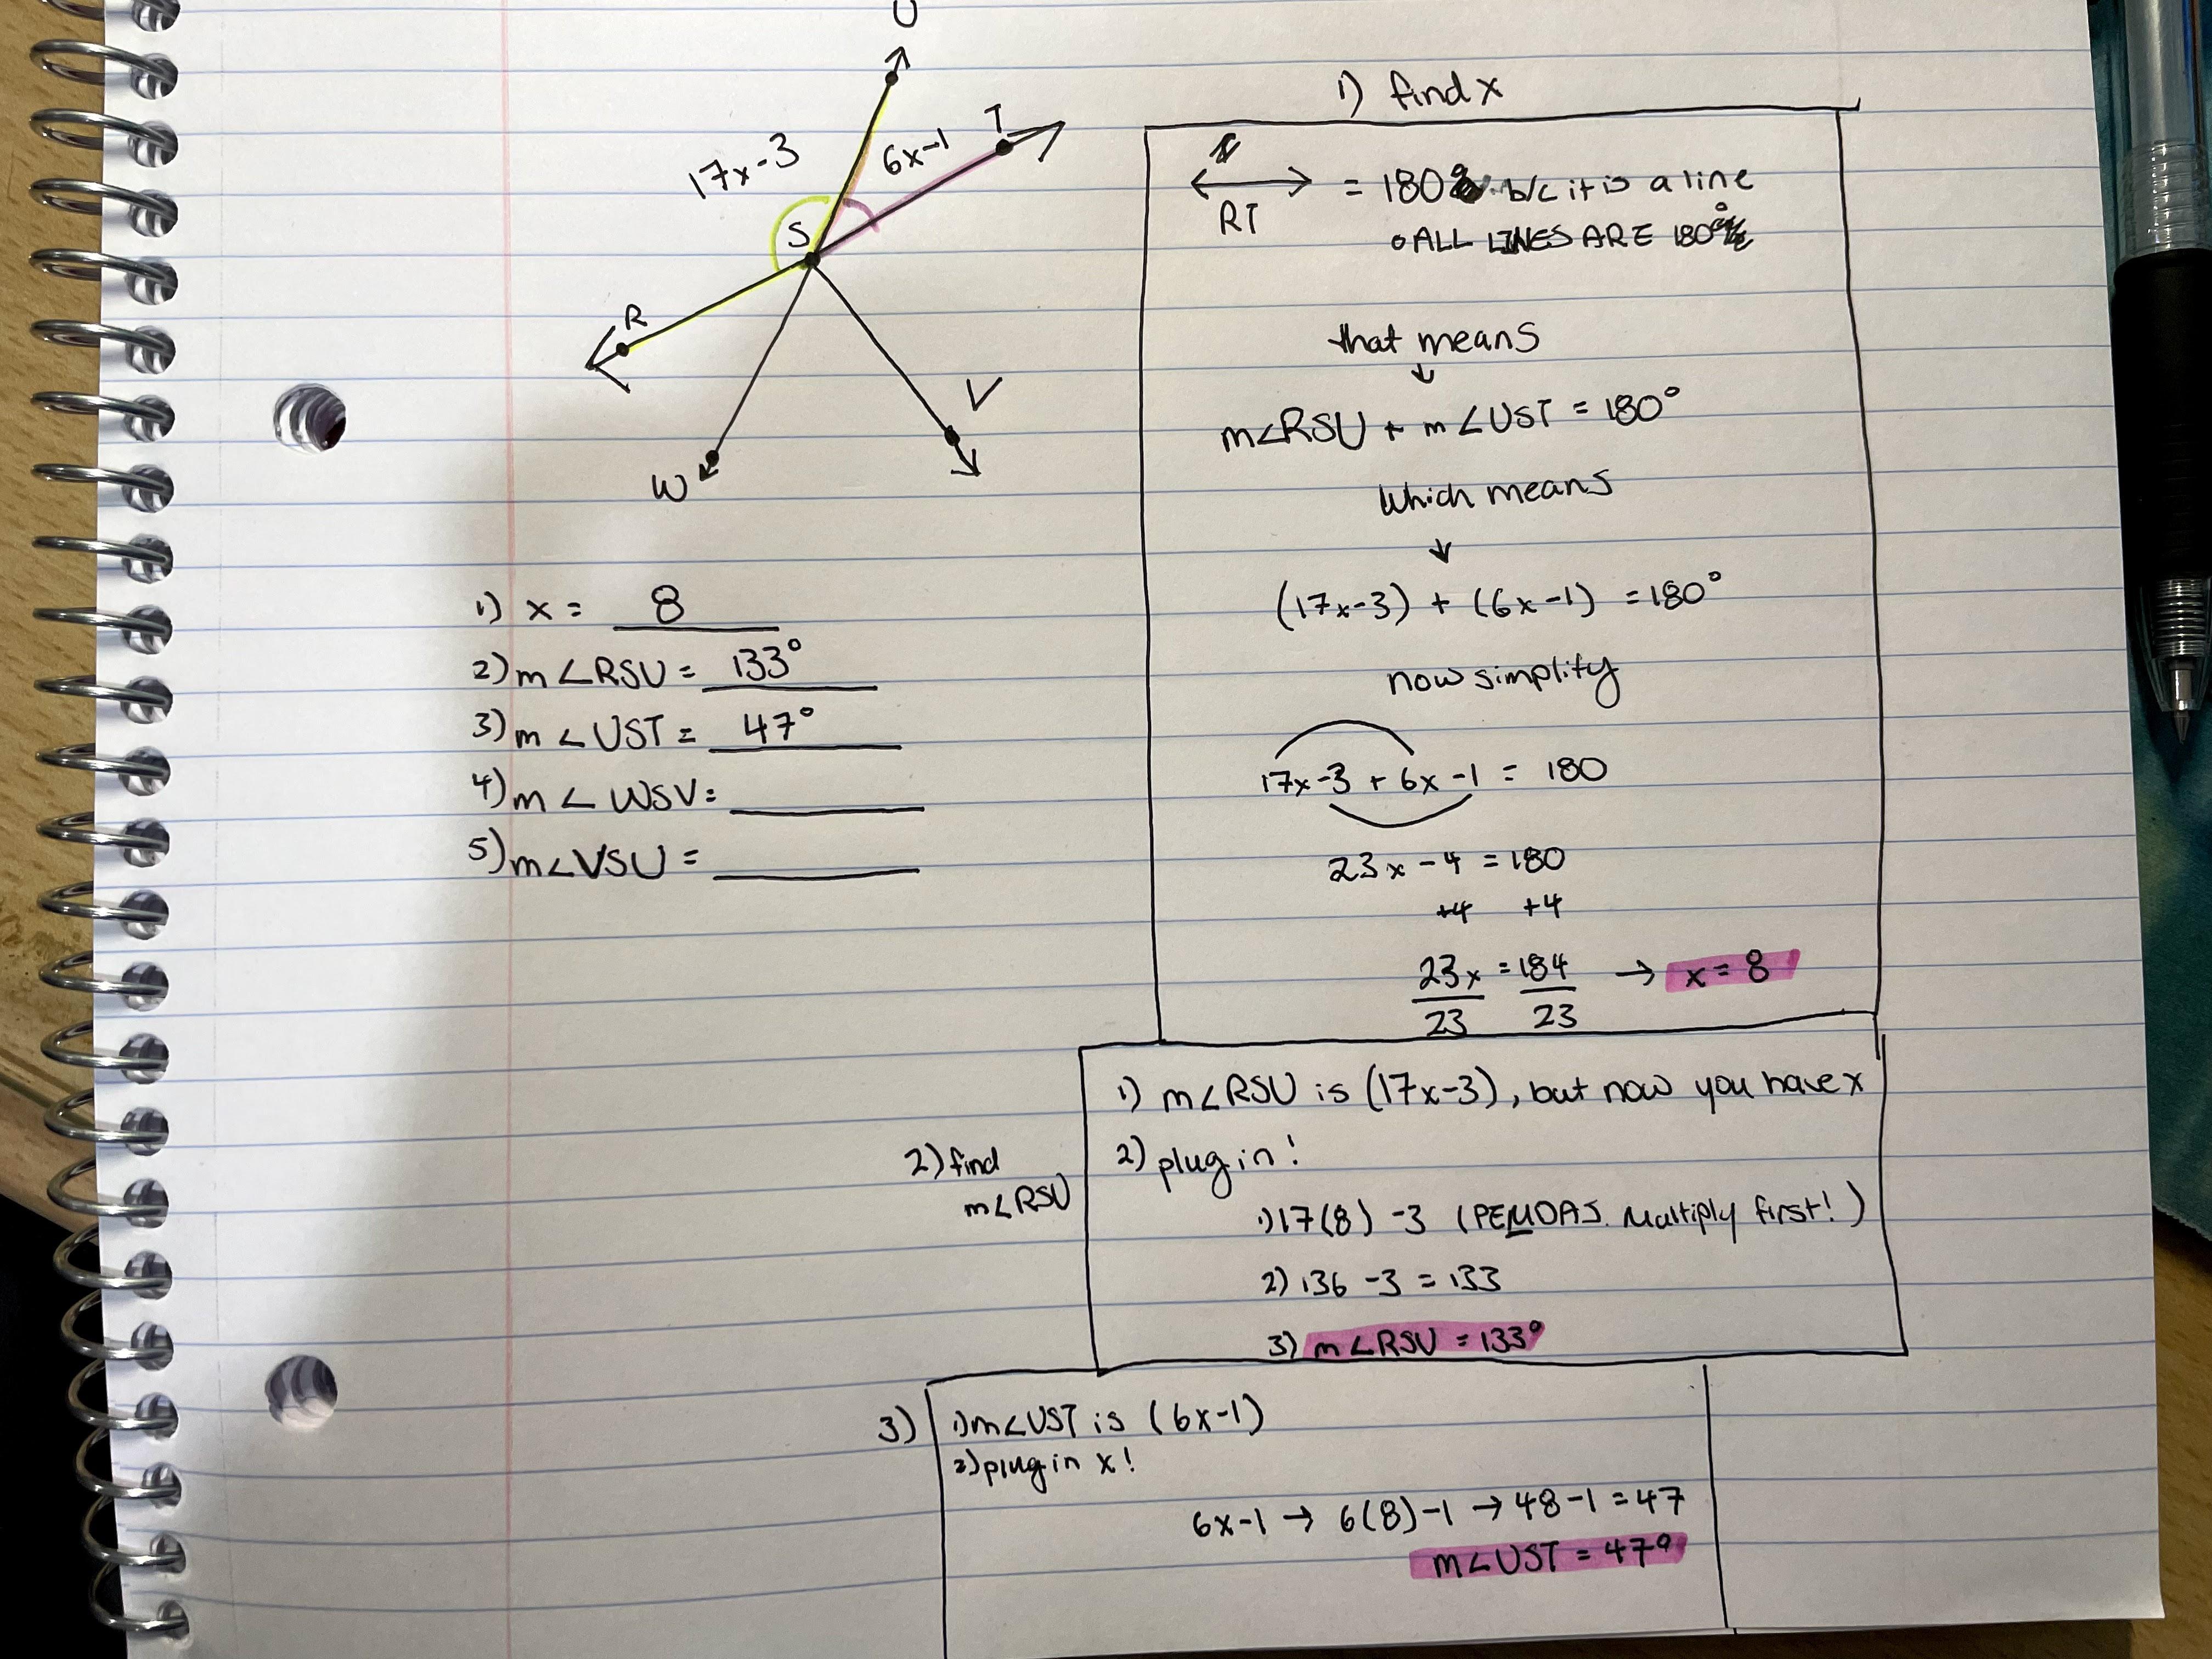 U
17x-3
6x-1
T
S
R
V
W
1) x = 8
2) m∠RSU = 133°
3) m∠UST = 47°
4) m∠WSV =
5) m∠VSU =
1) find x
RT
= 180 b/c it is a line
ALL LINES ARE 180°
that means
↓
m∠RSU + m∠UST = 180°
Which means
↓
(17x-3) + (6x-1) = 180°
now simplify
17x-3 + 6x-1 = 180
23x - 4 = 180
+4 +4
23x = 184 → x = 8
23 23
2) find
m∠RSU
1) m∠RSU is (17x-3), but now you have x
2) plug in!
1) 17(8) -3 (PEMDAS. Multiply first!)
2) 136 -3 = 133
3) m∠RSU = 133°
3)
1) m∠UST is (6x-1)
2) plug in x!
6x-1 → 6(8)-1 → 48-1 = 47
m∠UST = 47°